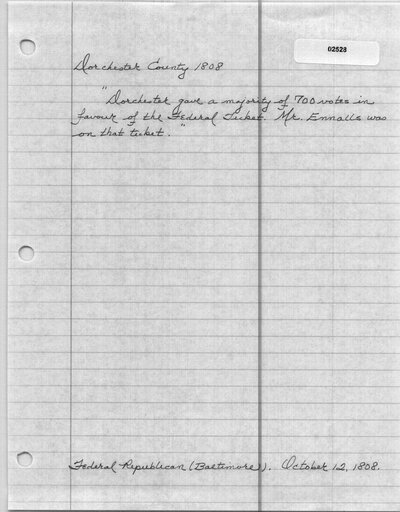 02528
Dorchester County 1808
"Dorchester gave a majority of 700 votes in
favour of the Federal Ticket. Mr. Ennalls was
on that ticket."
Federal Republican (Baltimore). October 12, 1808.